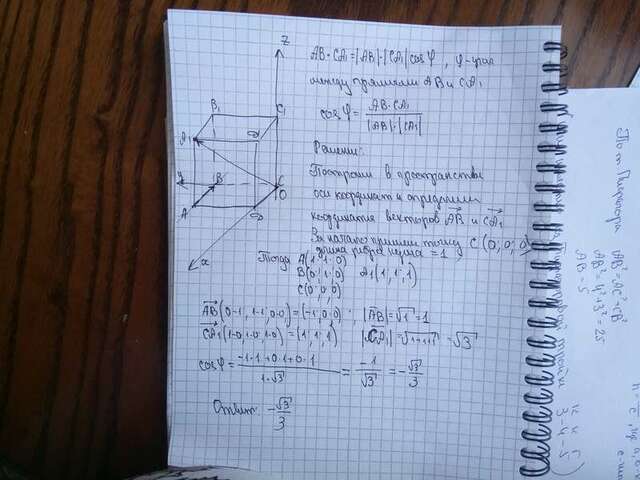 AB·CA₁=|AB|·|CA₁|cosφ, φ-угол
между прямыми AB и CA₁
cosφ= AB·CA₁ / |AB|·|CA₁|
Решение:
Построим в пространстве
оси координат и определим
координаты векторов AB и CA₁
За начало примем точку C(0,0,0)
длина ребра куба =1
Тогда A(1,1,0)
B(0,1,0) A₁(1,1,1)
C(0,0,0)
AB(0-1, 1-1, 0-0)=(-1,0,0); |AB|=√1=1
CA₁(1-0,1-0,1-0)=(1,1,1) |CA₁|=√1+1+1=√3
cosφ= -1·1+0·1+0·1 / 1·√3 = -1/√3 = -√3/3
Ответ: -√3/3
z
B₁
C₁
A₁
D₁
y
B
C
O
A
D
x
По т. Пифагора
AB²=AC²+CB²
AB²=4²+3²=25
AB=5
3-4-5)